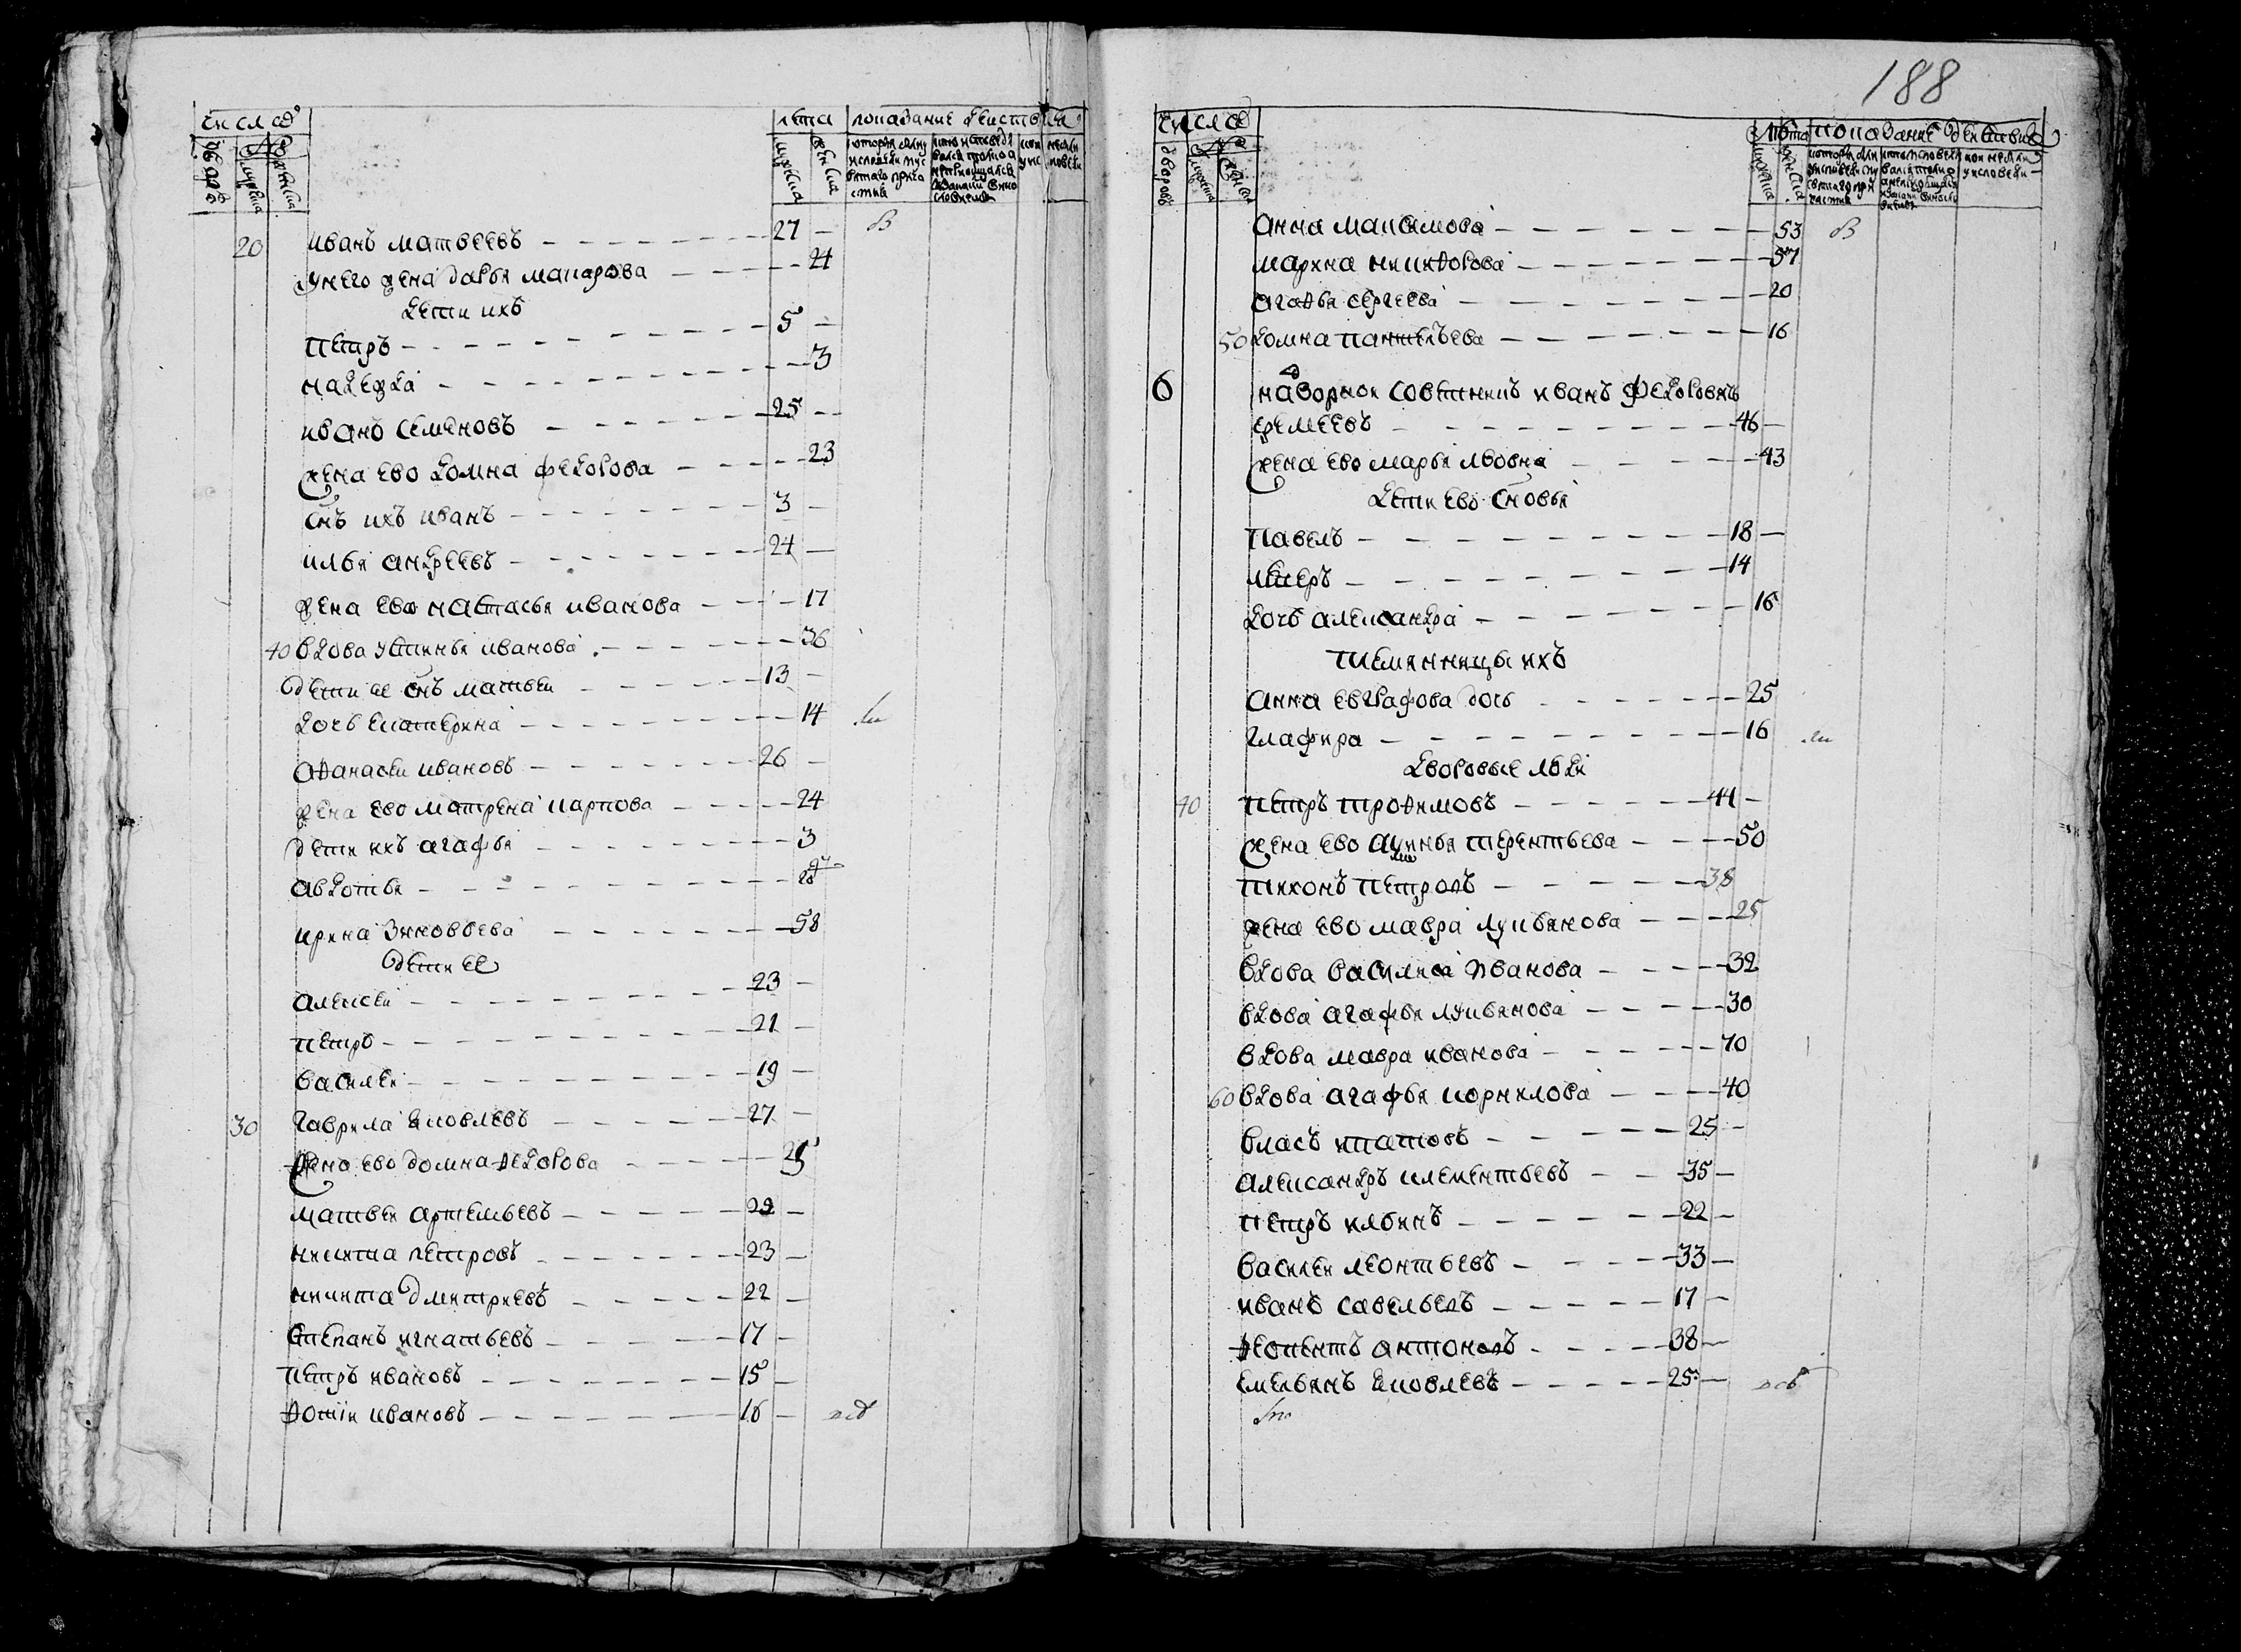 число
лета
показание действия
дворовъ
мужеска
женска
мужеска
женска
20 иванъ матвеевъ 27 — в
унего жена дарья макарова 24
дети ихъ
петръ 5 —
надежда 3
иванъ семеновъ 25 —
жена ево домна федорова 23
снъ ихъ иванъ 3 —
илья андреевъ 24 —
жена ево настасья иванова 17
40 вдова устинья иванова 36
дети ее снъ матвеи 13 —
дочь екатерина 14
афанасеи ивановъ 26 —
жена ево матрена карпова 24
дети ихъ агафья 3
авдотья
ирина зиновьева 58
дети ее
алексеи 23 —
петръ 21 —
василеи 19 —
30 гаврила яковлевъ 27 —
жена ево домна федорова 25
матвеи артемьевъ 22 —
никита петровъ 23 —
никита дмитриевъ 22 —
степанъ игнатьевъ 17 —
петръ ивановъ 15 —
фотiи ивановъ 16 —
188
число
лета показание действия
дворовъ
мужеска
женска
мужеска
женска
анна максимова 53 в
марина никифорова 57
агафья сергеева 20
50 домна пантелъева 16
6 надворнои советникъ иванъ федоровичь
еремеевъ 46 —
жена ево марья львовна 43
дети ево сновья
павелъ 18 —
14
дочь александра 16
племянницы ихъ
анна евграфова дочь 25
глафира 16
дворовые люди
40 петръ трофимовъ 44 —
жена ево акулина терентьева 50
тихонъ петровъ 38
жена ево мавра лукьянова 25
вдова василиса иванова 32
вдова агафья лукьянова 30
вдова мавра иванова 70
60 вдова агафья корнилова 40
власъ ипатовъ 25 —
александръ клементьевъ 35 —
петръ ильинъ 22 —
василеи леонтьевъ 33 —
иванъ савельевъ 17 —
феопентъ антоновъ 38 —
емельянъ яковлевъ 25 —